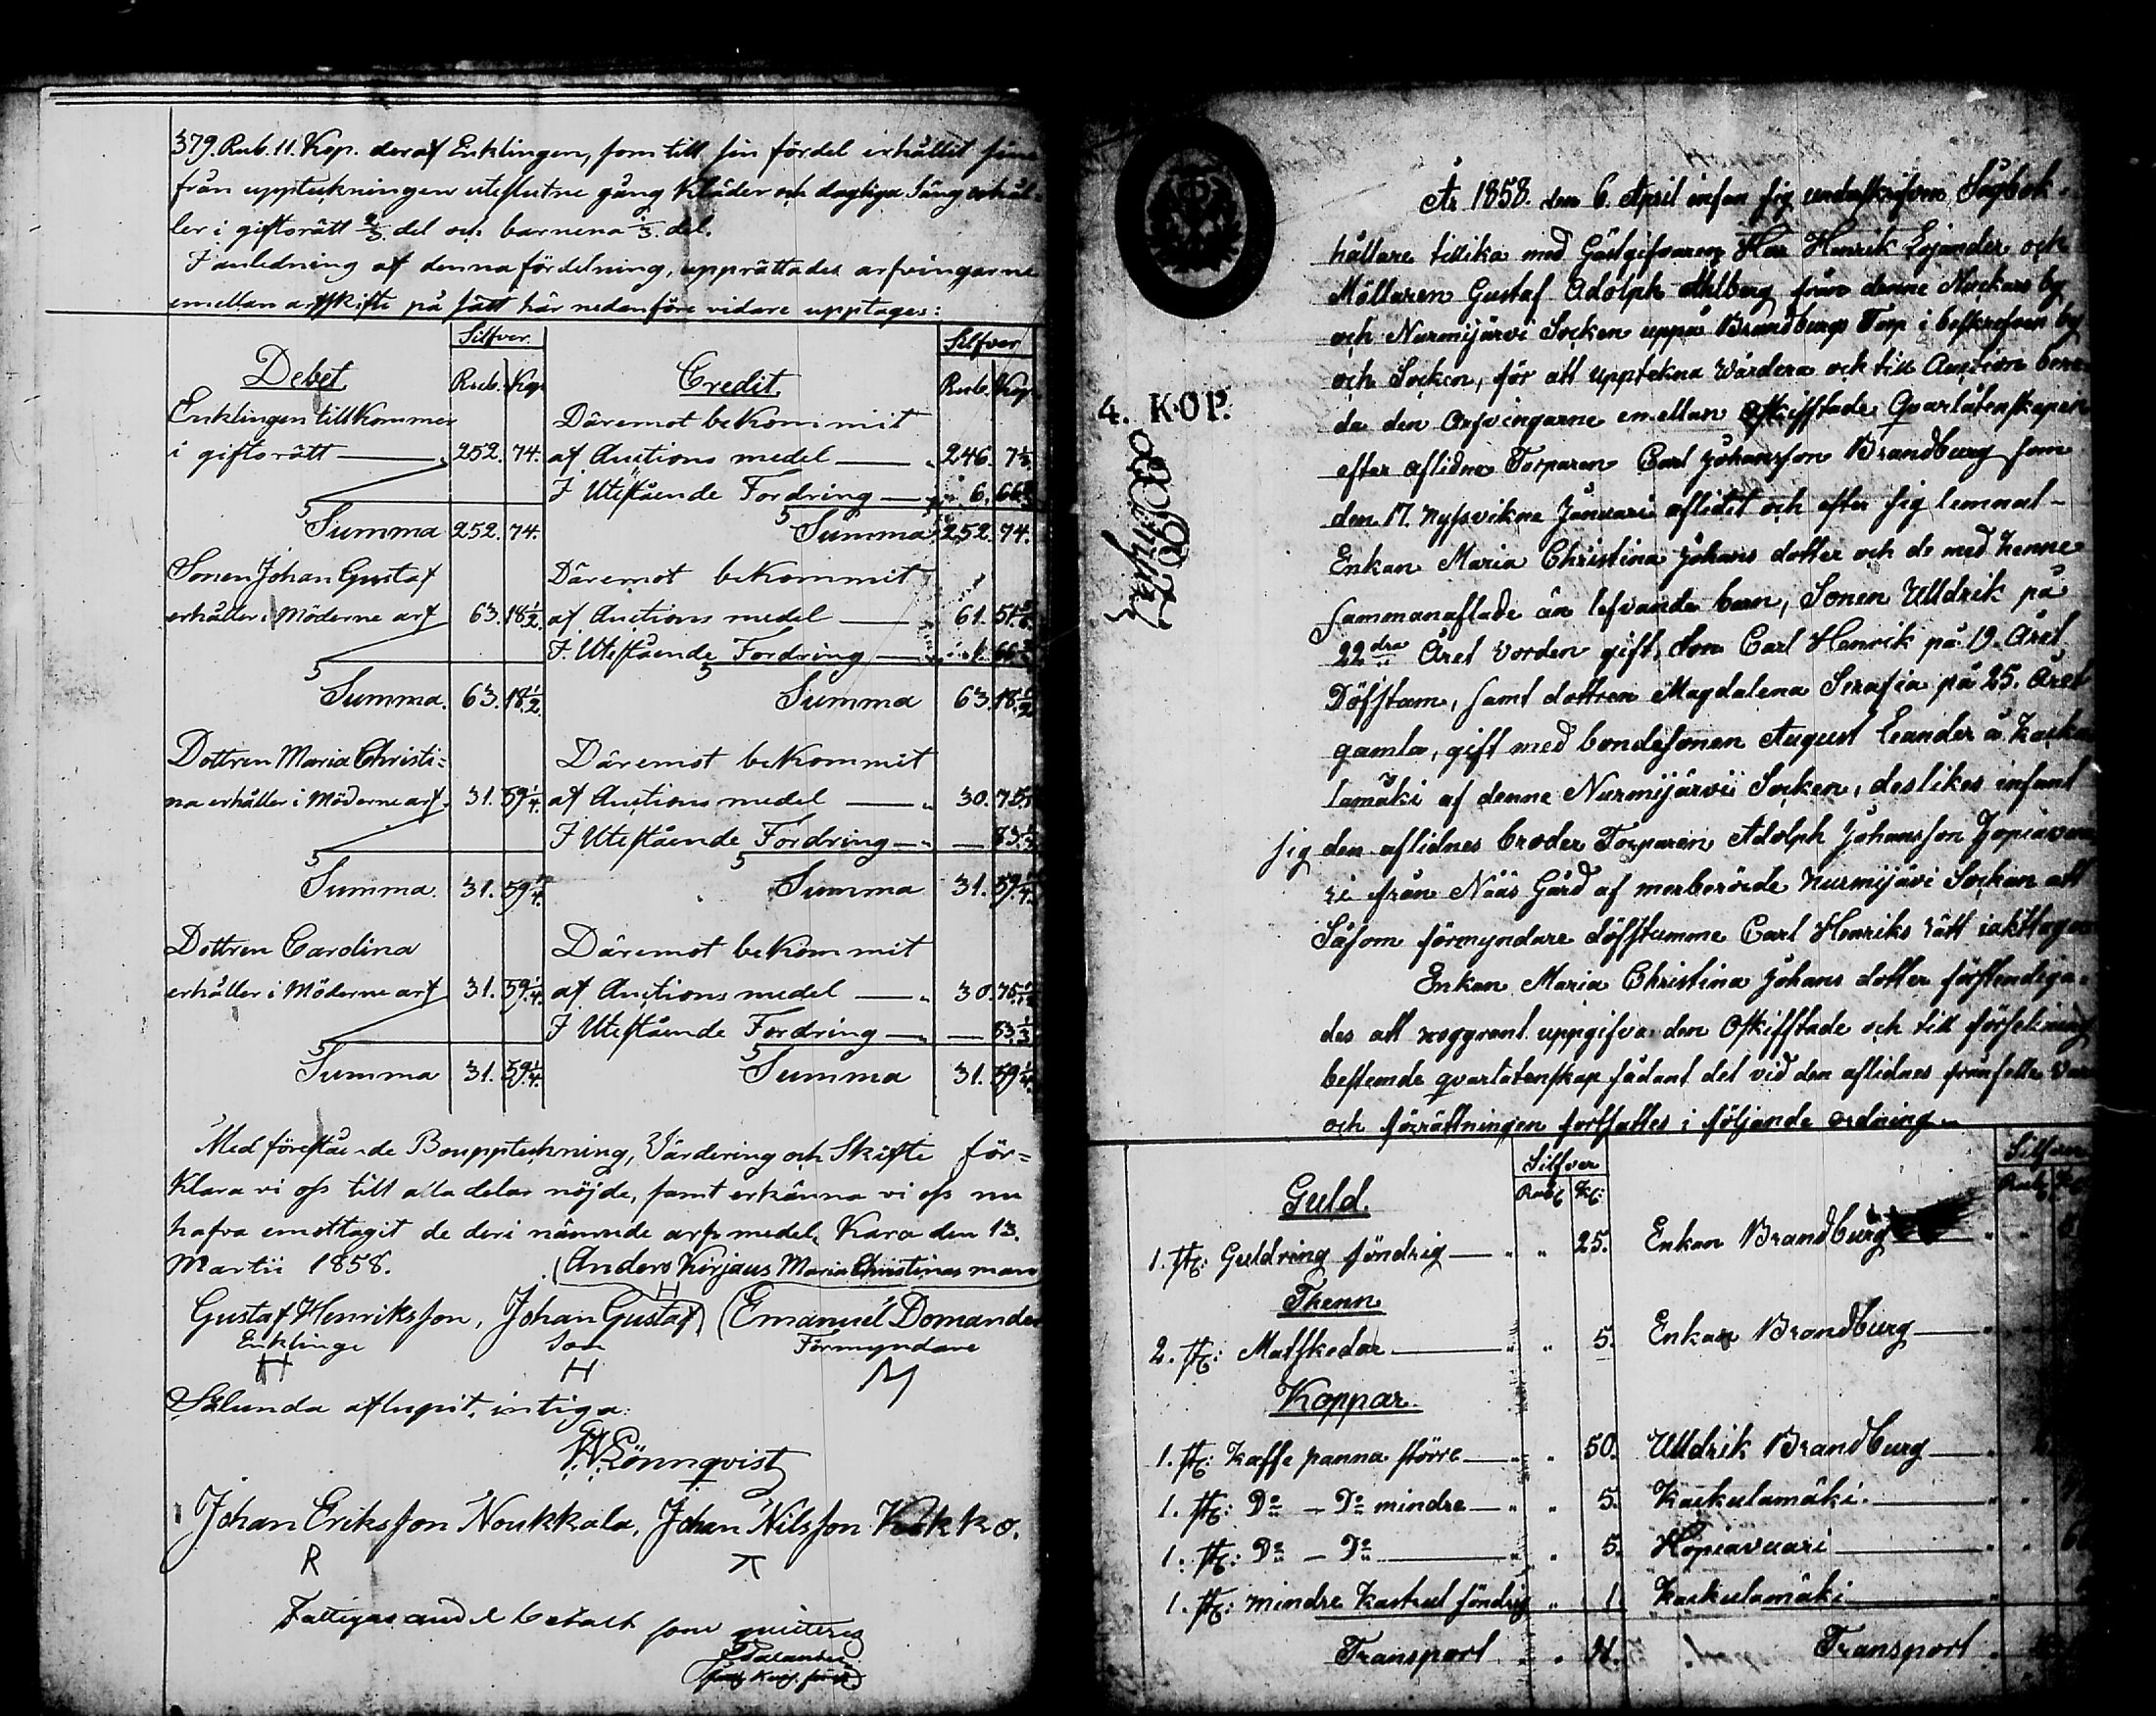 379. Rub. 11. Kop. deraf Enklingen, som till sin fördel erhållit sine
från uppteckningen uteslutne gång Kläder och dagliga Säng erhål=
ler i giftorätt 2/3 del och barnena 1/3 del.
I anledning af denna fördelning, upprättades arfvingarne
emellan arfskifte på sätt här nedanföre vidare upptages:
Silfver. Silfver
Debet Rub. Kop Credit Rub. Kop
Enklingen tillkommer Däremot bekommit
i giftorätt 252. 74. af Auctions medel 246. 7 1/3
I Utestående Fordring 6. 66 2/3
Summa 252. 74. Summa 252. 74.
Sonen Johan Gustaf Däremot bekommit
erhåller i Möderne arf 63. 18 1/2. af Auctions medel 61. 51
I Utestående Fordring 1. 66 2/3
Summa. 63. 18 1/2. Summa 63. 18 1/2
Dottren Maria Christi= Däremot bekommit
na erhåller i Möderne arf. 31. 59 1/4. af Auctions medel 30. 75
I Utestående Fordring 83 1/3
Summa. 31. 59 1/4. Summa 31. 59 1/4.
Dottren Carolina Däremot bekommit
erhåller i Möderne arf 31. 59 1/4. af Auctions medel 30. 75
I Utestående Fordring 83 1/3
Summa 31. 59 1/4. Summa 31. 59 1/4.
Med förestående Bouppteckning, Värdering och Skifte för=
klara vi oss till alla delar nöjde, samt erkänna vi oss nu
hafva emottagit de deri nämnde arfs medel, Kara den 13.
Martii 1858. (Anders Kirjaus Maria Christinas man
Gustaf Henriksson, Johan Gustaf, (Emanuel Domander
Enklinge Son Förmyndare
Sålunda aflupit, intiga:
Lönnqvist
Johan Eriksson Noukkala, Johan Nilsson Kokko.
R
Fattigas andel betalt som quiteras
År 1858. den 6. April infan sig undertecknom Dagbok-
hållare tillika med Gästgifvaren Her Henrik Lejander och
Möllaren Gustaf Adolph Ahlberg från denne by
och Nurmijärvi Socken uppå Brandburgs Torp i beskrefven by
och Socken, för att upptekna Wärdera och till Auction
da den Arfvingarne emellan oskifftade Qvarlåtenskapen
efter aflidne Torparen Carl Johansson Brandburg som
4. KOP.
den 17. nyssvikne Januari aflidit och efter sig lemnat
Enkan Maria Christina Johans dotter och de med henne
sammanaflade än lefvande barn, Sonen Ulldrik på
22dra Året vorden gift, Son Carl Henrik på 19. Året,
Döfstum, samt dottren Magdalena Serafia på 25. Året
gamla, gift med bondesonen August Leander å Kasku
lamäki af denne Nurmijärvii Socken, deslikes infant
sig den aflidnes broder Torparen Adolph Johansson Hopiavuo
ri från Nääs Gård af merberörde Nurmijävi Sockan att
Såsom förmyndare döfstumme Carl Henriks rätt iakttagen
Enkan Maria Christina Johans dotter förstendiga-
des att noggrant uppgifva den Oskifftade och till
bestemde qvarlåtenskap sådant det vid den aflidnes frånfelle var
och förrättningen fortsattes i följande ordning
Silfver Silfver
Guld. Rubl K:
1. st: Guldring söndrig 25. Enkan Brandburg
Thenn
2. st: Matskedar 5. Enkan Brandburg
Koppar
1. st: Kaffe panna större 50. Ulldrik Brandburg
1. st: Do - Do mindre 5. Kaskulamäki.
1. st: Do - Do 5. Hopiavuari
1. st: mindre Kastrul söndrig 1. Kaskulamäki
Transport Transport